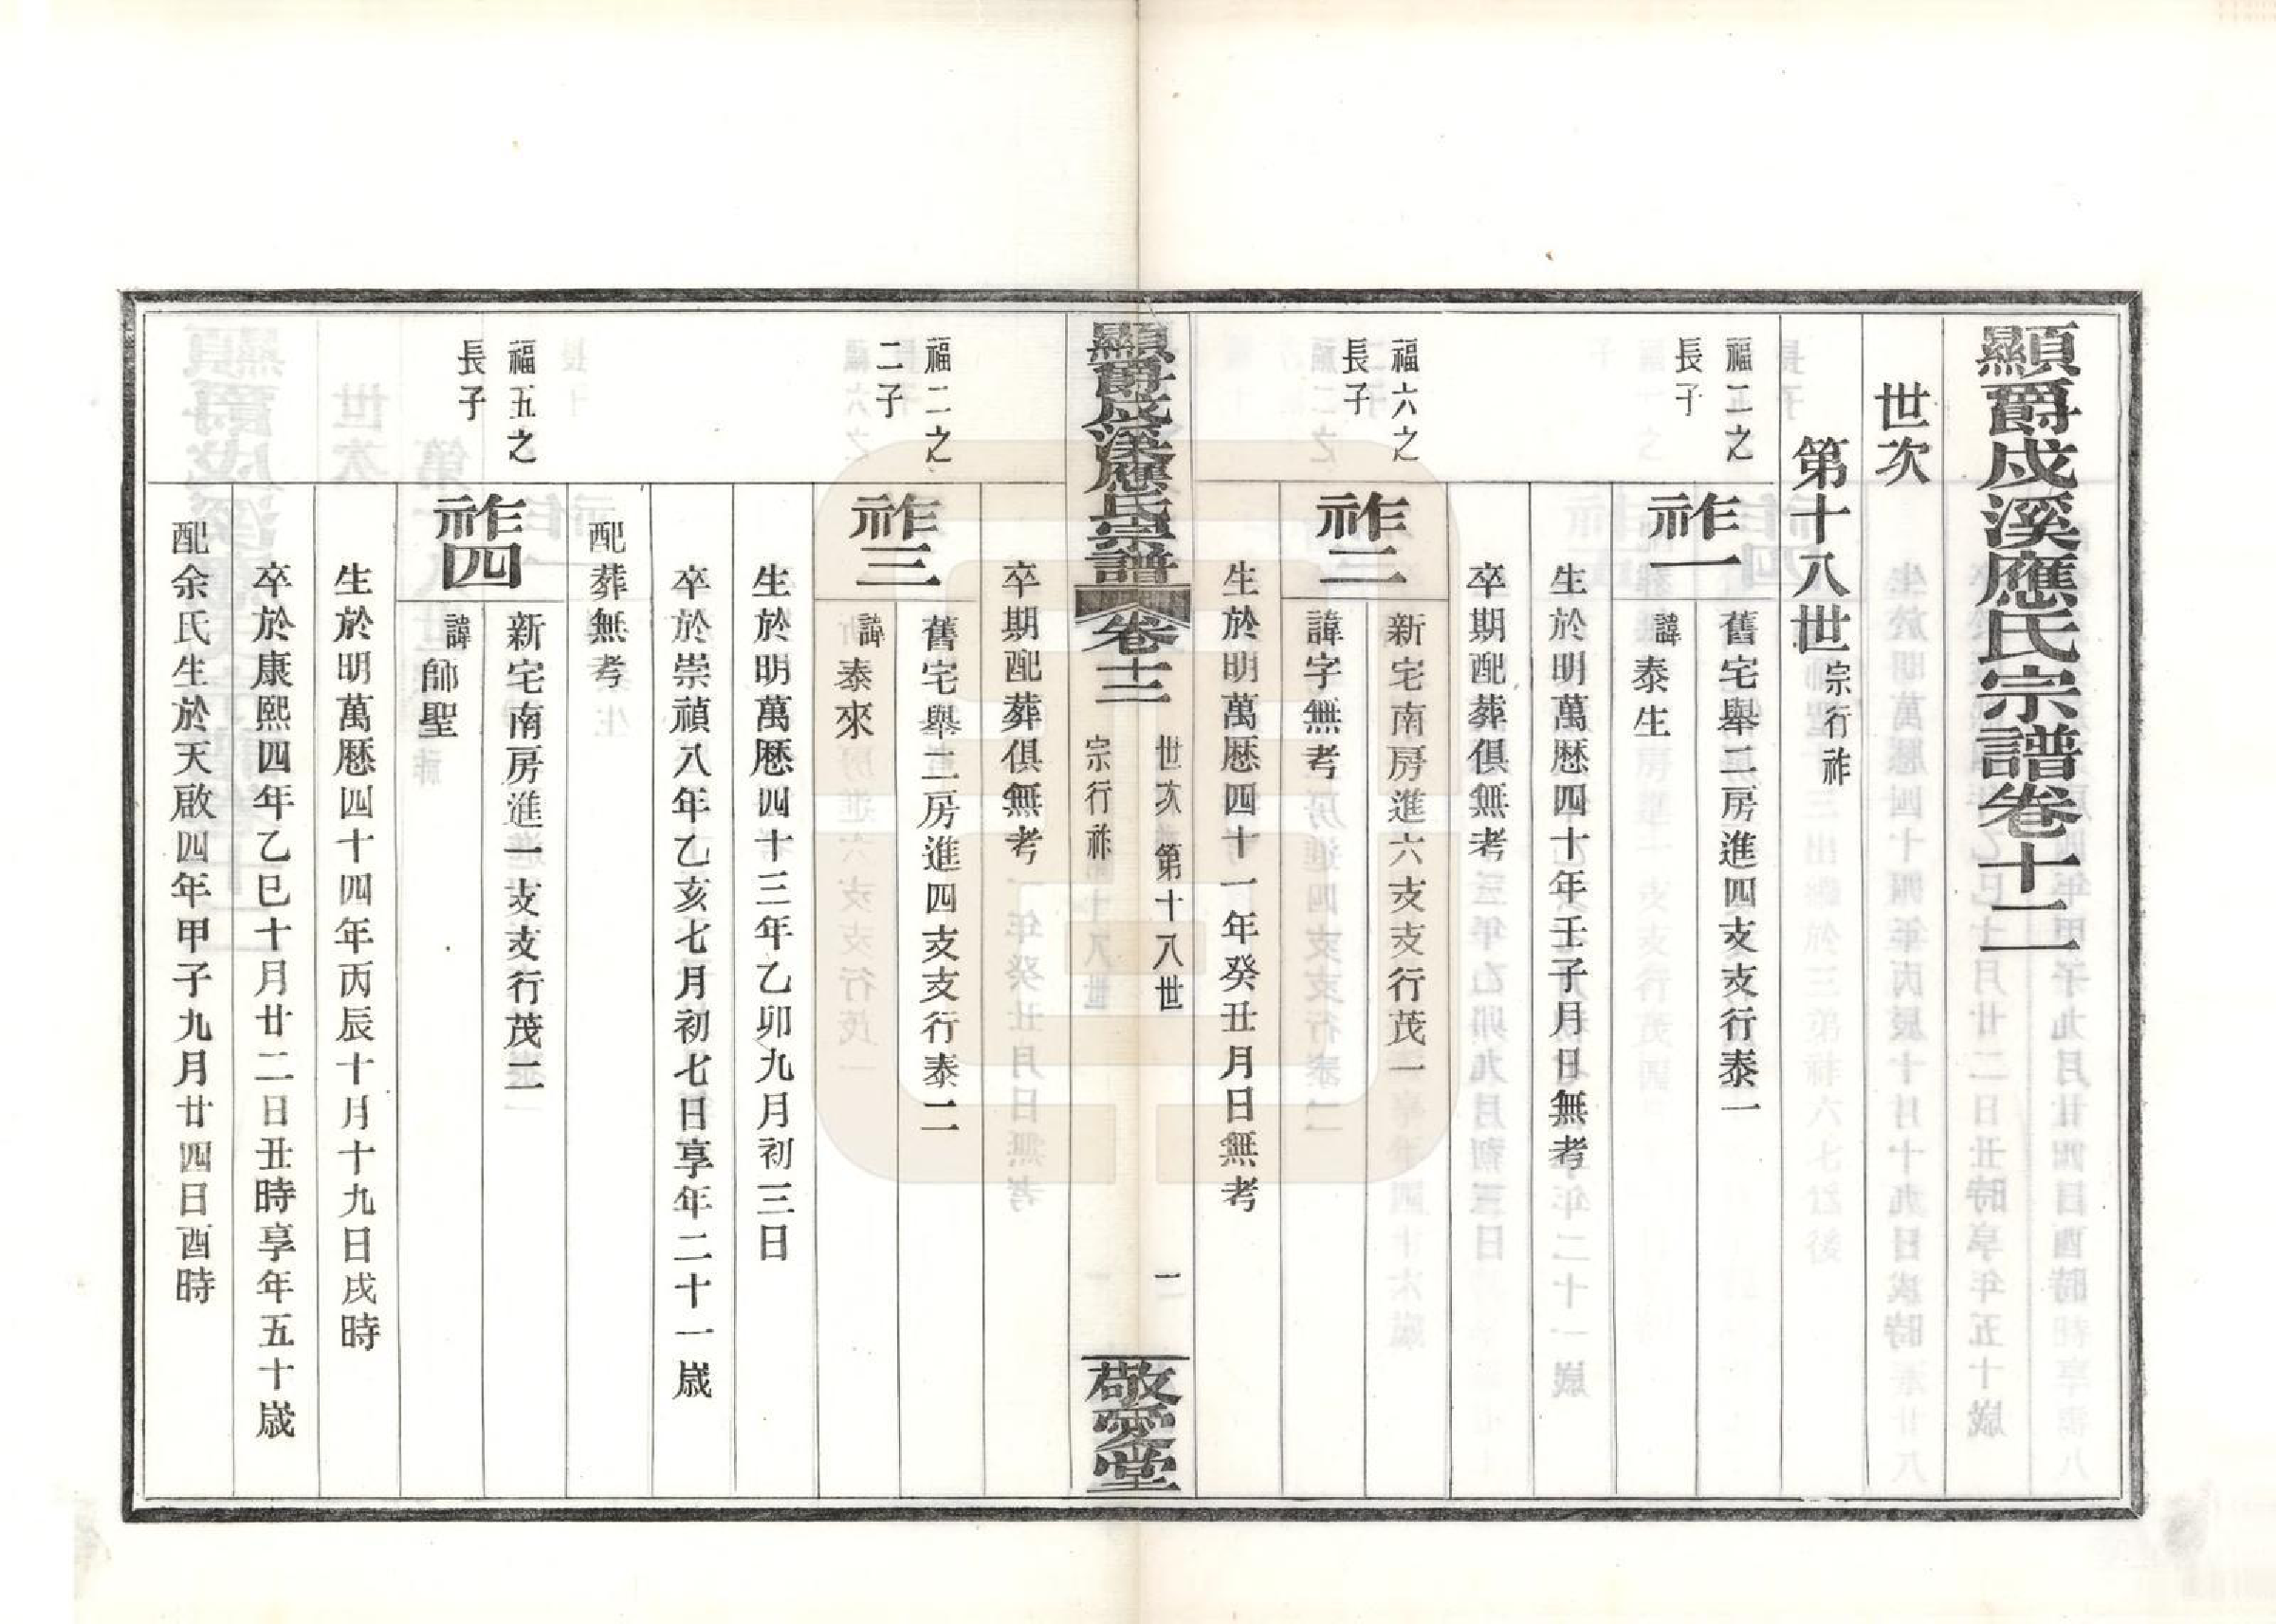 顯爵戍溪應氏宗譜卷十二
世次
第十八世宗行祚
福二之
長子
祚一
舊宅舉二房進四支支行泰一
諱泰生
生於明萬歷四十年壬子月日無考
卒期配葬俱無考
福六之
長子
祚二
新宅南房進六支支行茂一
諱字無考
生於明萬歷四十一年癸丑月日無考
顯爵戍溪應氏宗譜 卷十二
世次 第十八世
宗行祚
二
敬愛堂
卒期配葬俱無考
福二之
二子
祚三
舊宅舉二房進四支支行泰二
諱泰來
生於明萬歷四十三年乙卯九月初三日
卒於崇禎八年乙亥七月初七日享年二十一歲
配葬無考
福五之
長子
祚四
新宅南房進一支支行茂二
諱師聖
生於明萬歷四十四年丙辰十月十九日戌時
卒於康熙四年乙巳十月廿二日丑時享年五十歲
配余氏生於天啟四年甲子九月廿四日酉時